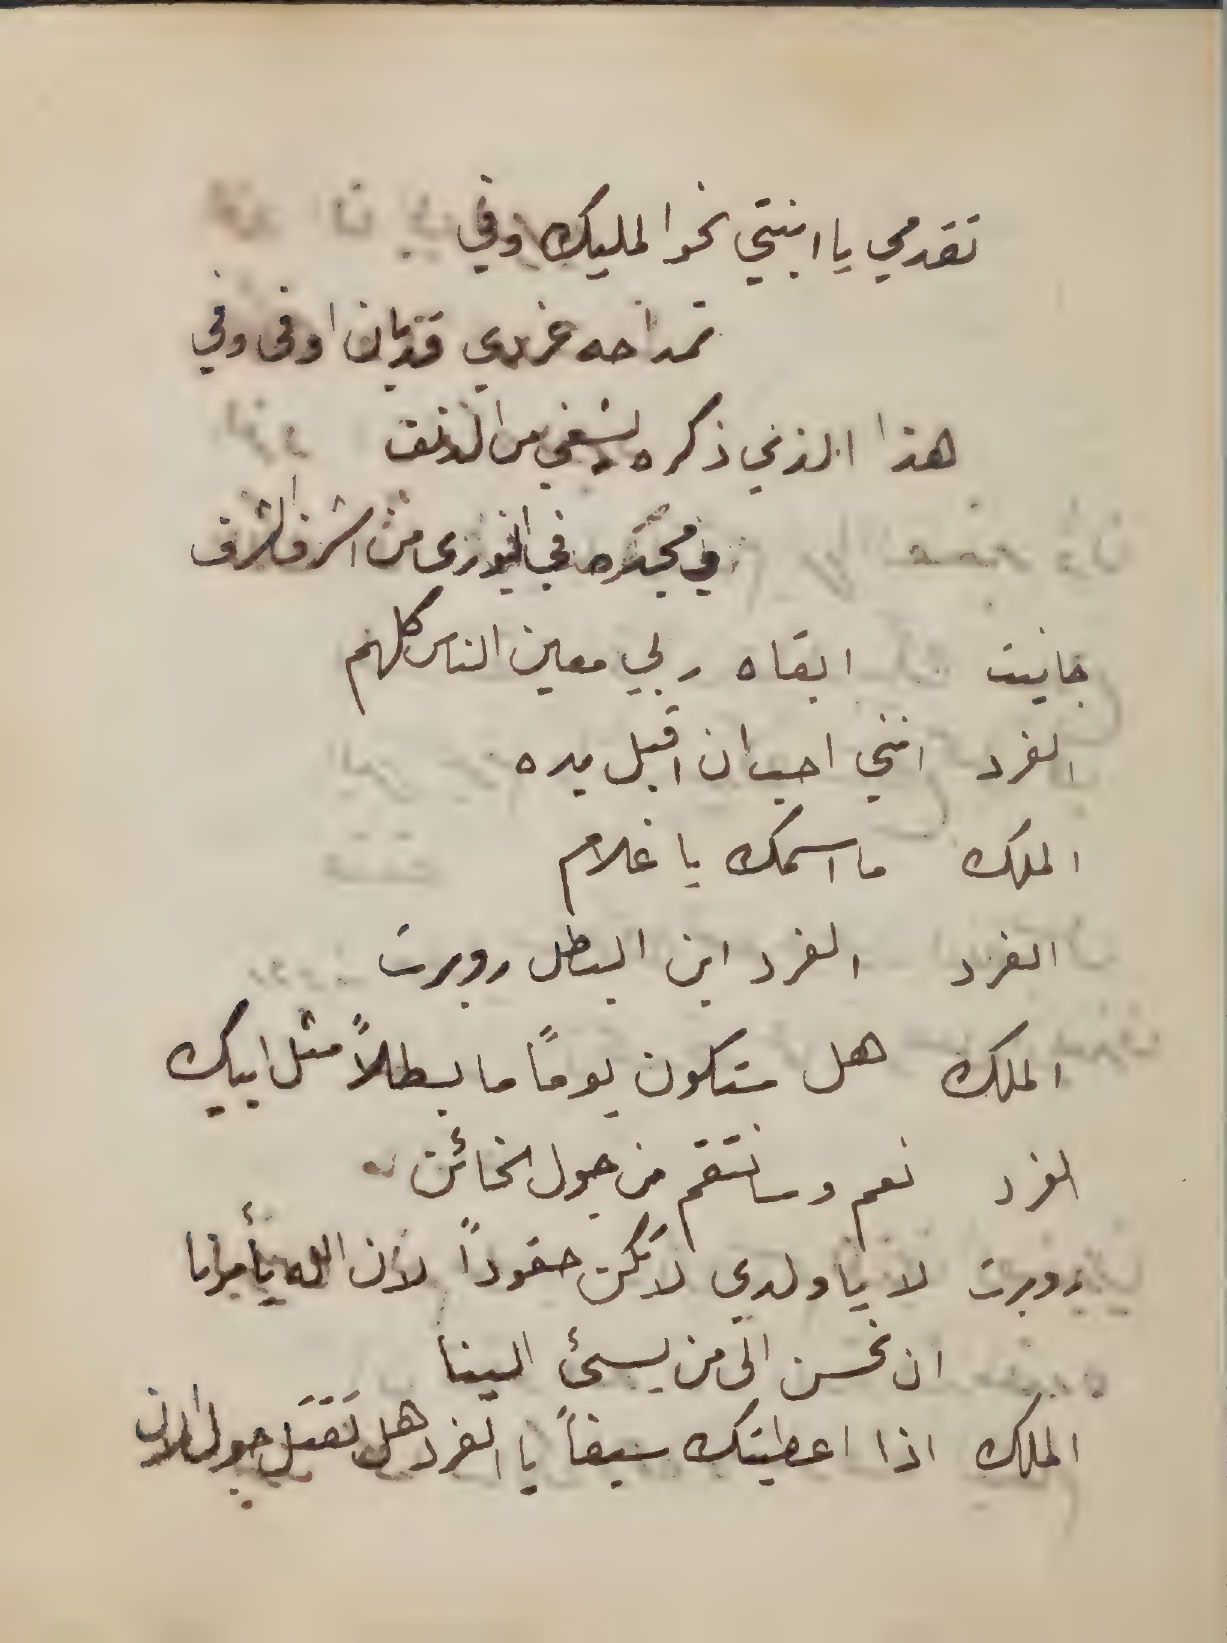 تقدمي يا ابنتي نحو المليك وفي
تمداحه غردي قد بان اوفى وفي
هذا الذي ذكره يشفي من الدنف
في مجده في الورى من اشرف الشرف
جانيت ابقاه ربي معين الناس كلهم
الفرد انني احب ان اقبل يده
الملك ما اسمك يا غلام
الفرد الفرد ابن البطل روبرت
الملك هل ستكون يومًا ما بطلاً مثل ابيك
الفرد نعم وسانتقم من جول الخائن
روبرت لا يا ولدي لا تكن حقوداً لان الله يأمرنا
ان نحسن الى من يسئ الينا
الملك اذا اعطيتك سيفاً يا الفرد هل تقتل جول الان